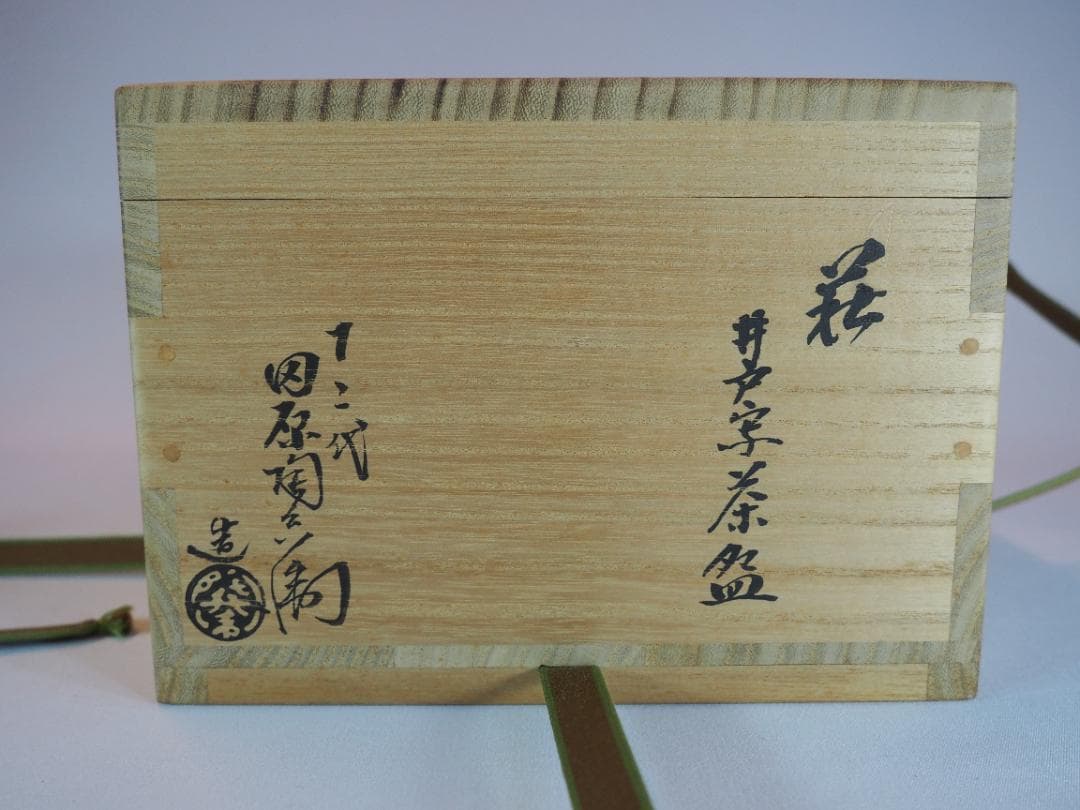 萩
井戸字茶盌
十二代
田原陶兵衛
造